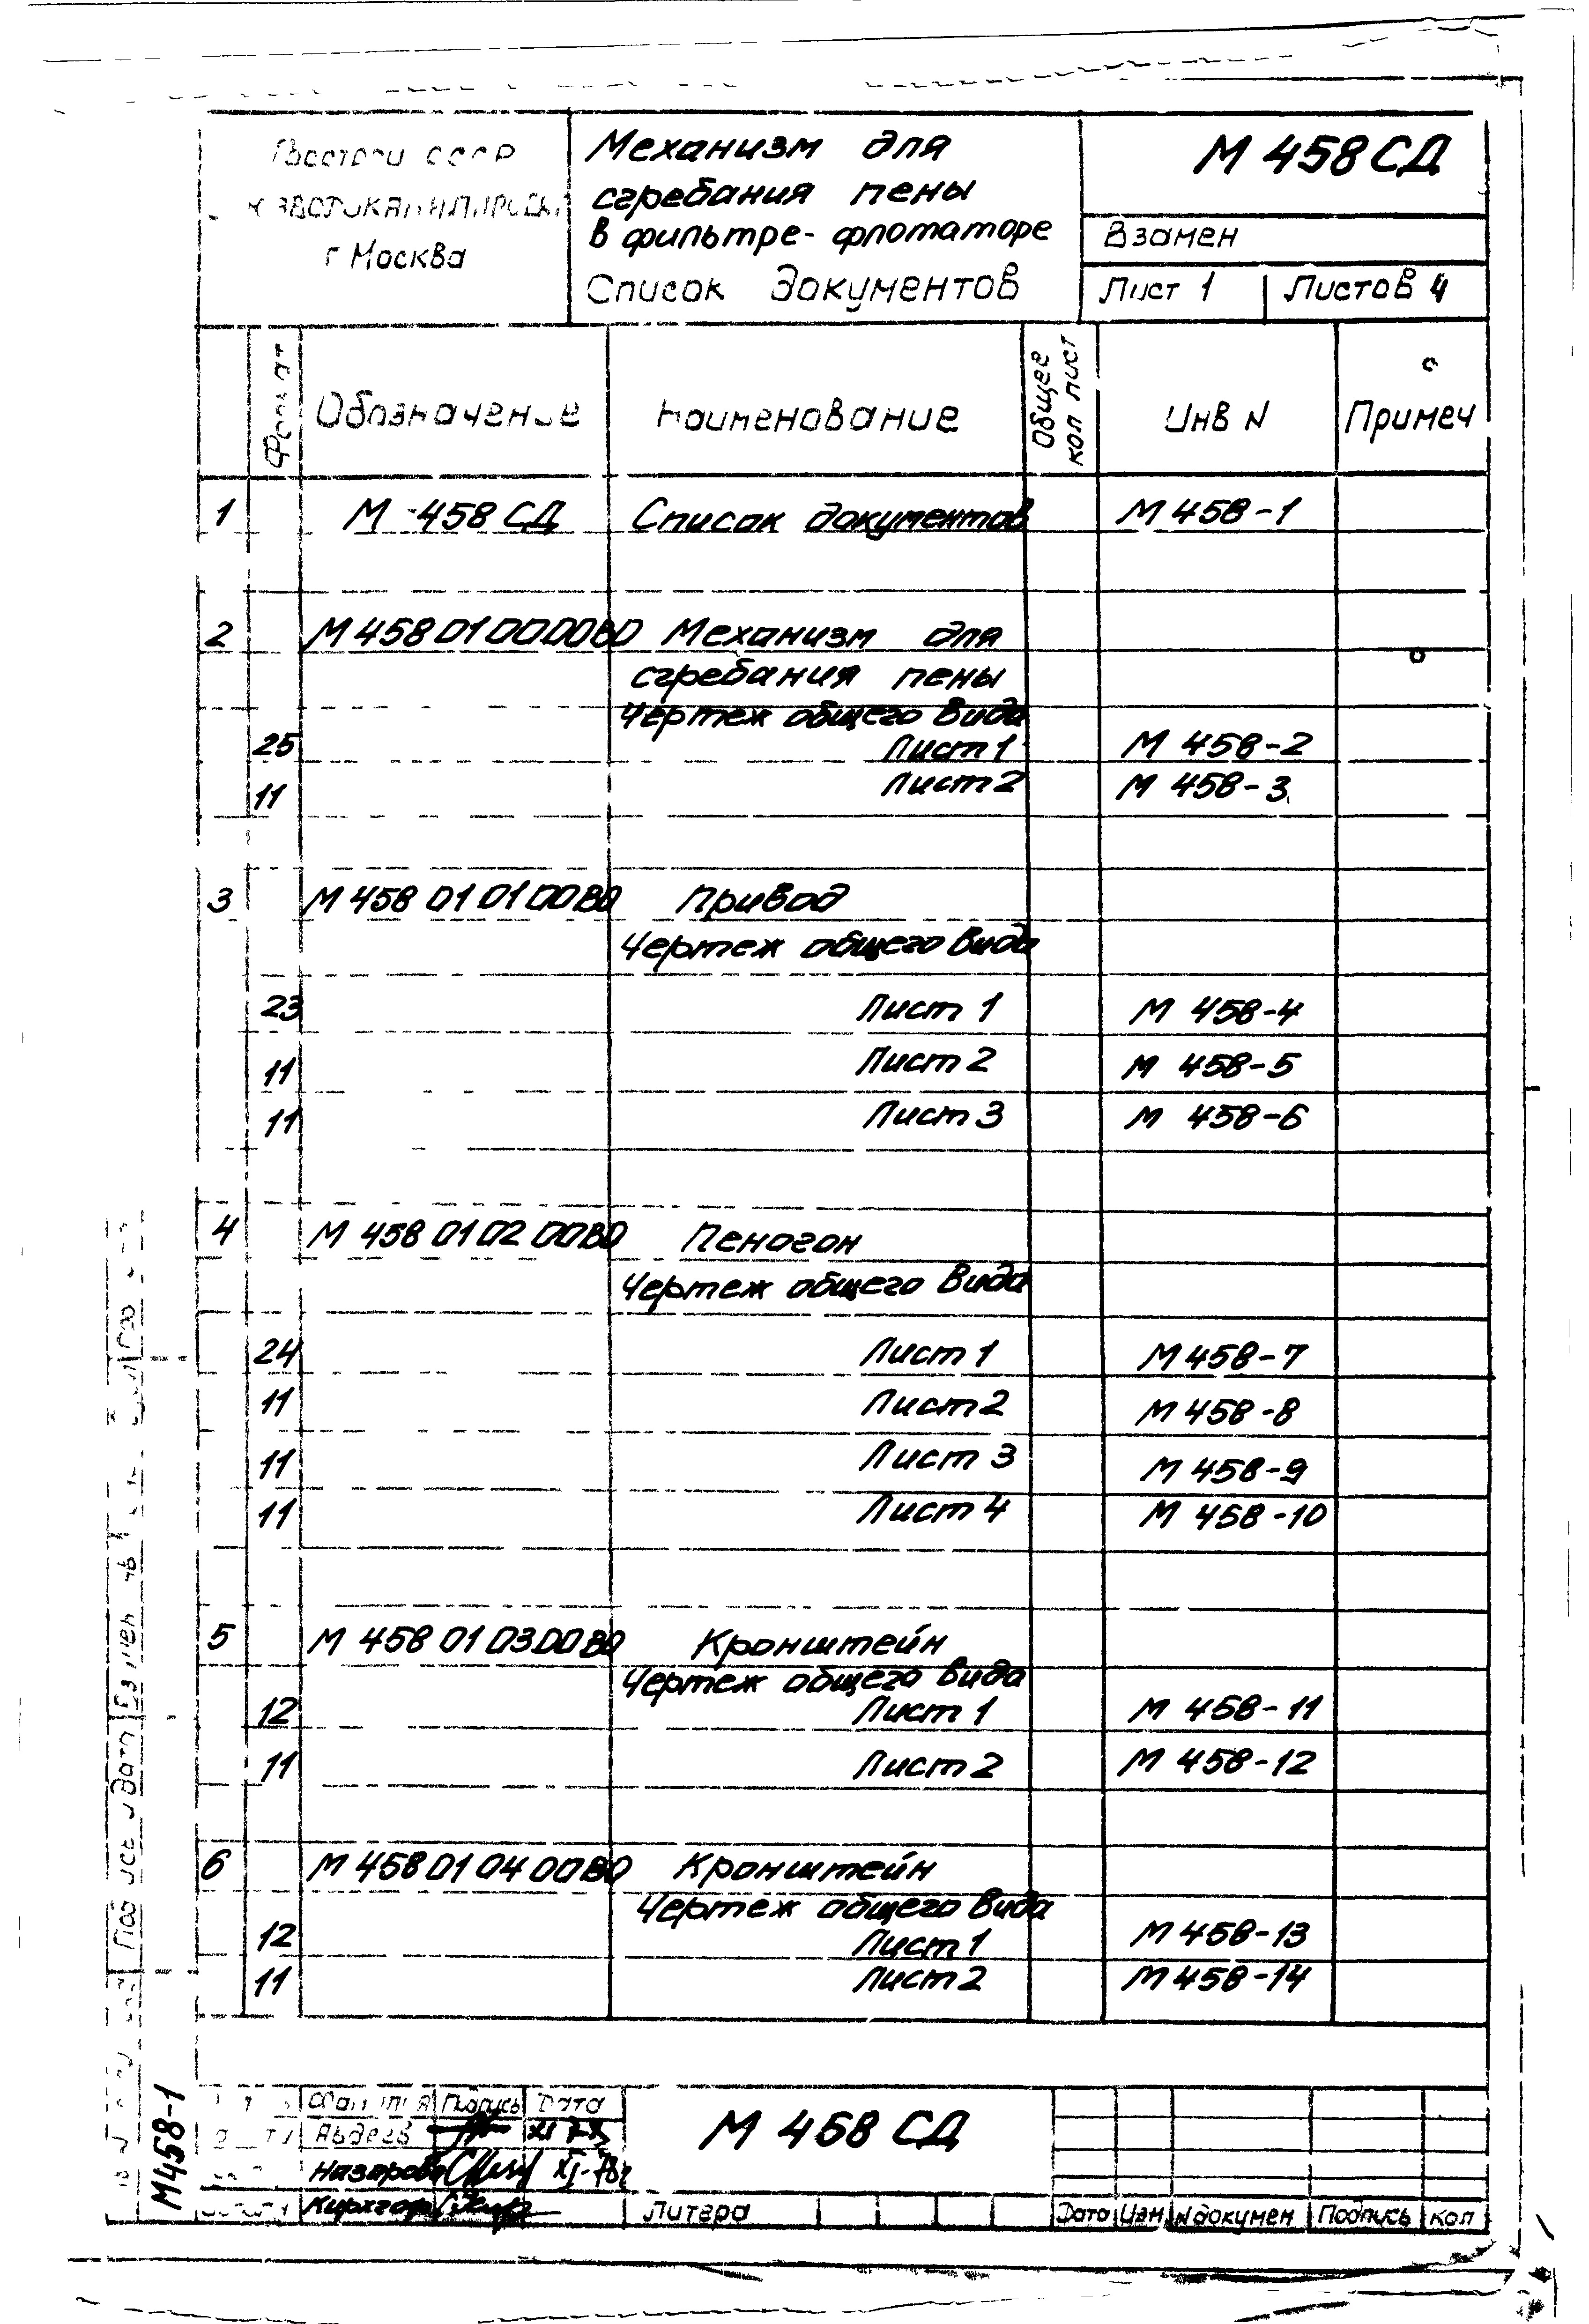 г Москва
Механизм для
сгребания пены
в фильтре-флотаторе
Список документов
М 458 СД
Взамен
Лист 1 Листов 4
Формат Обозначение Наименование Общее кол лист Инв N Примеч
1 М-458 СД Список документов М 458-1
2 М 458 01 00 00 В0 Механизм для
сгребания пены
Чертеж общего вида
25 Лист 1 М 458-2
11 Лист 2 М 458-3
3 М 458 01 01 00 В0 Привод
Чертеж общего вида
23 Лист 1 М 458-4
11 Лист 2 М 458-5
11 Лист 3 М 458-6
4 М 458 01 02 00 В0 Пеногон
Чертеж общего вида
24 Лист 1 М 458-7
11 Лист 2 М 458-8
11 Лист 3 М 458-9
11 Лист 4 М 458-10
5 М 458 01 03 00 В0 Кронштейн
Чертеж общего вида
12 Лист 1 М 458-11
11 Лист 2 М 458-12
6 М 458 01 04 00 В0 Кронштейн
Чертеж общего вида
12 Лист 1 М 458-13
11 Лист 2 М 458-14
М458-1
Подпись Дата
Авдеев
Назарова XI-78г
М 458 СД
Литера
Дата Изм N докумен Подпись Кол